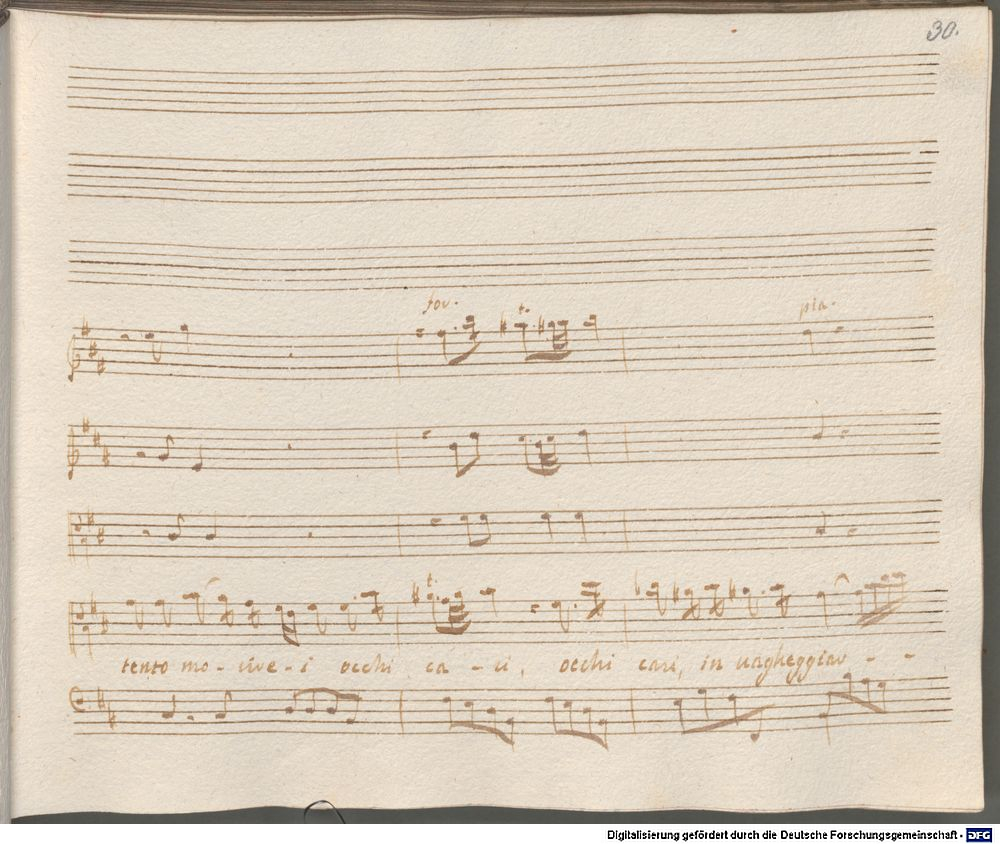 30.
for.
t.
pia.
t.
tento mo-rire-i occhi ca-ri, occhi cari, in vagheggiar--
Digitalisierung gefördert durch die Deutsche Forschungsgemeinschaft - DFG